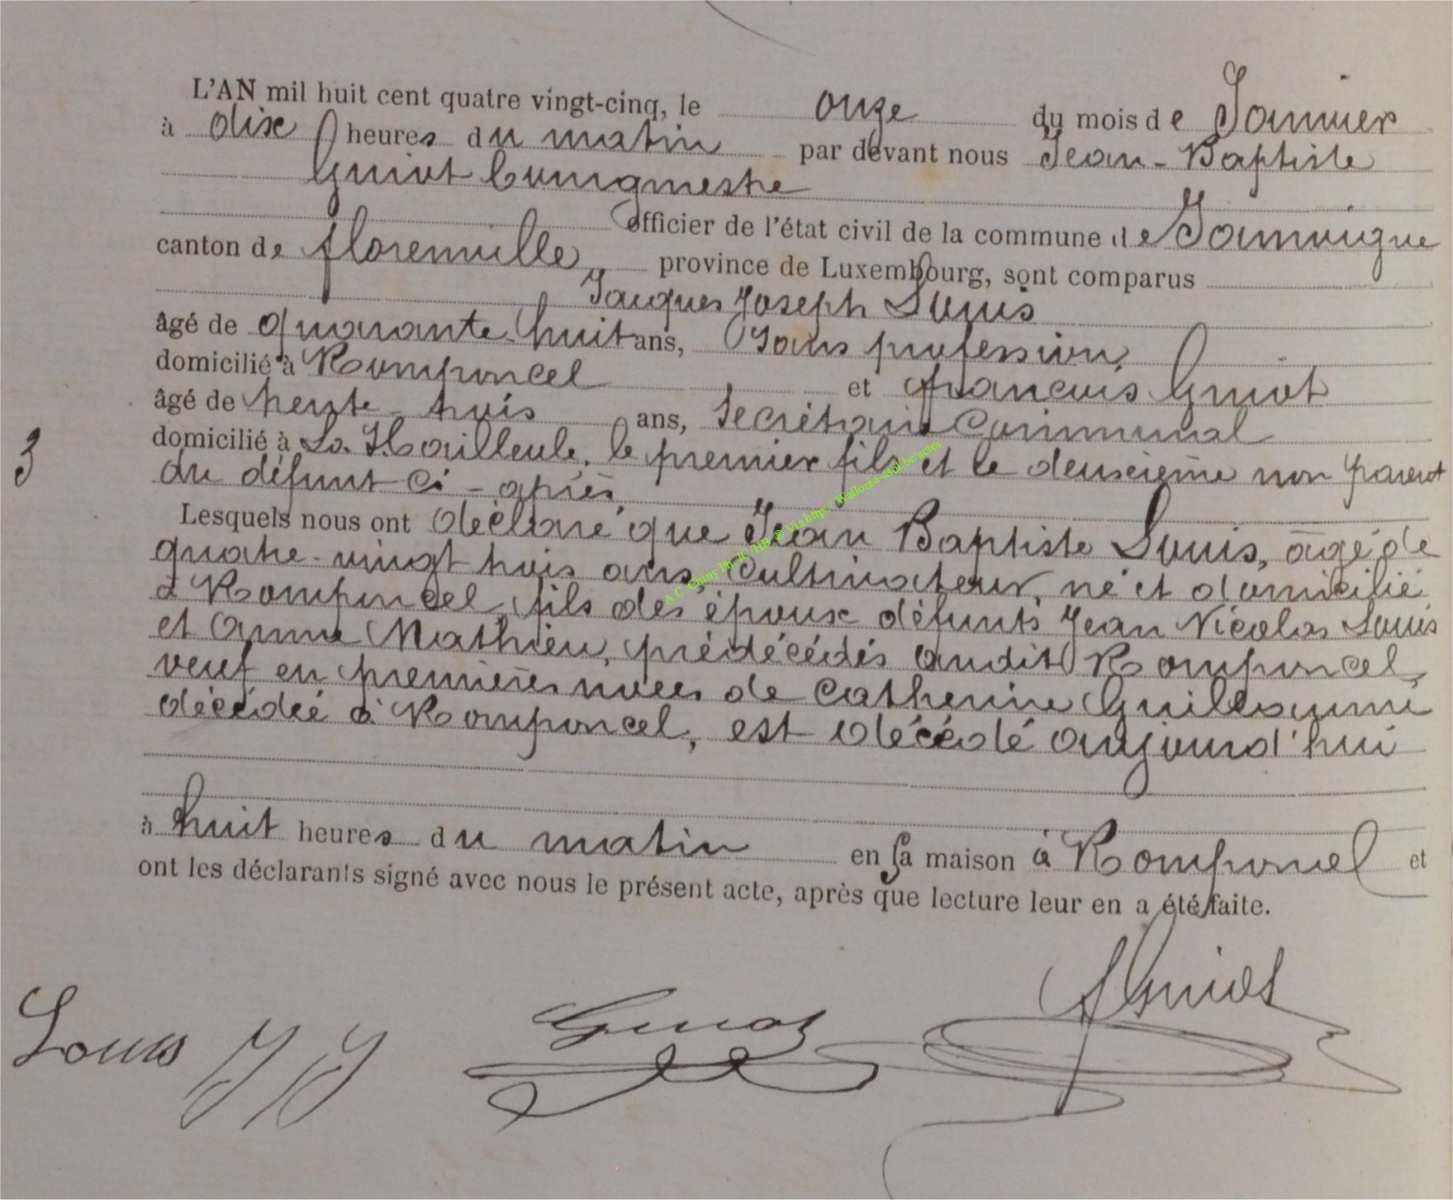 L'AN mil huit cent quatre vingt-cinq, le onze du mois de Janvier
à dix heures du matin par devant nous Jean-Baptiste
Guiot bourgmestre
officier de l'état civil de la commune de Jamoigne
canton de Florenville province de Luxembourg, sont comparus
Jacques Joseph Louis
âgé de quarante-huit ans, sans profession,
domicilié à Romponcel et François Guiot
âgé de trente-trois ans, Secrétaire Communal
domicilié à La Hailleule, le premier fils et le deuxième non parent
3
du défunt ci-après
Lesquels nous ont déclaré que Jean Baptiste Louis, âgé de
quatre-vingt trois ans, Cultivateur, né et domicilié
à Romponcel, fils des époux défunts Jean Nicolas Louis
et Anne Mathieu, prédécédés audit Romponcel,
veuf en premières noces de Catherine Guillaume
décédée à Romponcel, est décédé aujourd'hui
à huit heures du matin en sa maison à Romponcel et
ont les déclarants signé avec nous le présent acte, après que lecture leur en a été faite.
Louis JJ Guiot F Guiot